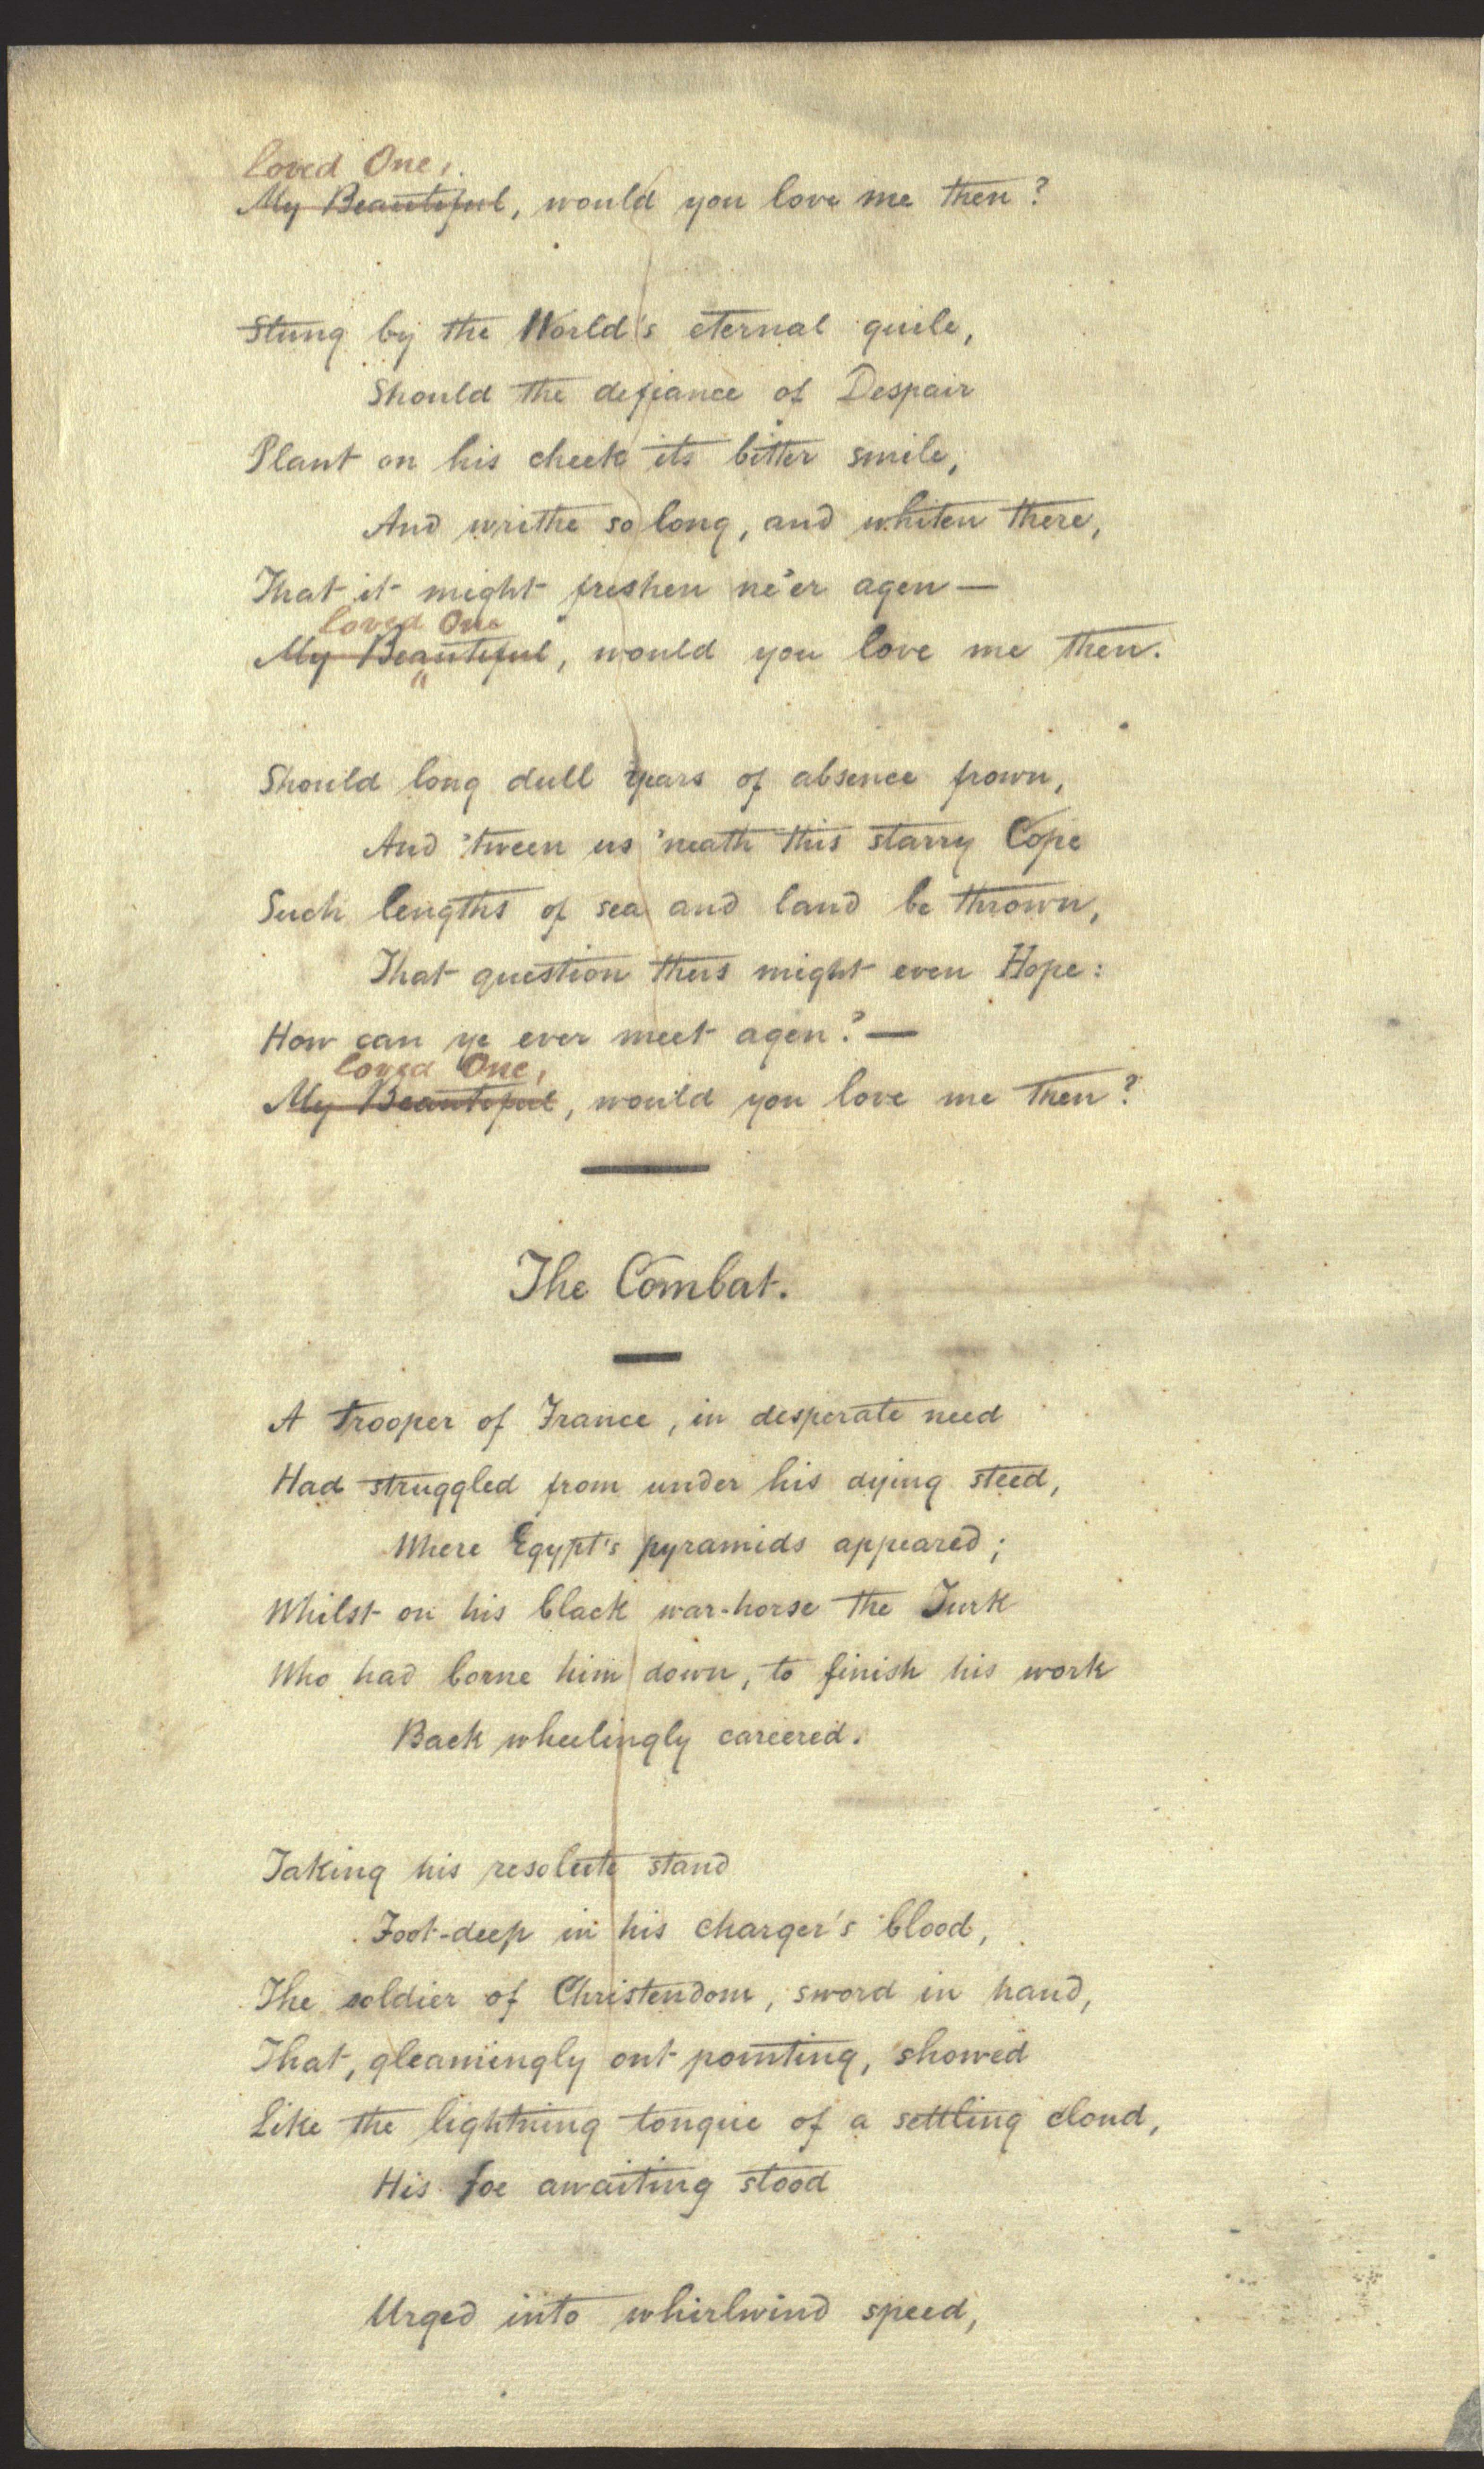 Loved One,
My Beautiful, would you love me then?
Stung by the World's eternal guile,
Should the defiance of Despair
Plant on his cheek its bitter smile,
And writhe so long, and whiten there,
That it might freshen ne'er agen —
Loved One
My Beautiful, would you love me then.
Should long dull years of absence frown,
And 'tween us 'neath this starry Cope
Such lengths of sea and land be thrown,
That question thus might even Hope:
How can ye ever meet agen? —
Loved One,
My Beautiful, would you love me then?
The Combat.
A Trooper of France, in desperate need
Had struggled from under his dying steed,
Where Egypt's pyramids appeared;
Whilst on his black war-horse the Turk
Who had borne him down, to finish his work
Back wheelingly careered.
Taking his resolute stand
Foot-deep in his charger's blood,
The soldier of Christendom, sword in hand,
That, gleamingly out pointing, showed
Like the lightning tongue of a settling cloud,
His foe awaiting stood
Urged into whirlwind speed,